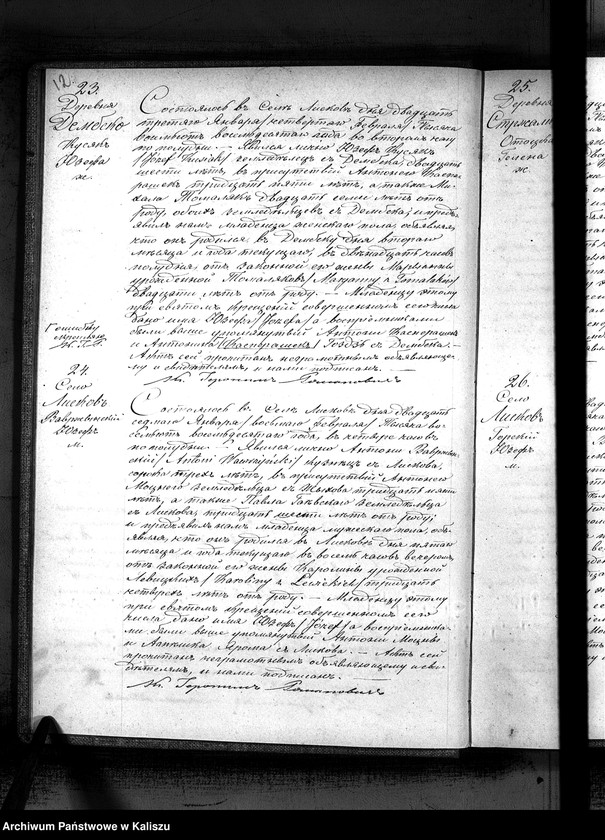 12
23.
Деревня
Дембско
Кусякъ
Юзефа
ж.
Состоялось въ Селѣ Лисковъ дня двадцать
третяго Января/четвертаго Февраля/тысяча
восемьсотъ восемдесятаго года во второмъ часу
по полудни. — Явился лично Юзефъ Кусякъ
/Józef Kusiak/ земледѣлецъ съ Дембска, двадцать
шесть лѣтъ, въ присутствіи Антонего
тридцать пяти лѣтъ, а также Ми-
хала Томаляка двадцать семи лѣтъ отъ
роду, обоихъ земледѣльцевъ съ Дембска и предъ-
явилъ намъ младенца женскаго пола, объявляя,
что онъ родился въ Дембску дня втораго
мѣсяца и года текущаго, въ двѣнадцать часовъ
полудня, отъ законной его жены Марьянны
урожденной Томаляковъ/Maryanny z Tomalaków/
двадцати лѣтъ отъ роду. — Младенцу этому
при святомъ крещеніи совершенномъ сего числа
дано имя Юзефа/Józefa/ а воспріемниками
были выше упомянутый Антони
и Антонина съ Дембска. —
Актъ сей прочитанъ неграмотнымъ объявляюще-
му и свидѣтелямъ, и нами подписанъ. —
Кс. Геронимъ
24.
Село
Лисковъ
Вавжкевинскій
Юзефъ
м.
Состоялось въ Селѣ Лисковъ дня двадцать
седмаго Января/восьмаго Февраля/тысяча во-
семьсотъ восемдесятаго года, въ четыре часовъ
по полудни. Явился лично Антони
/Antoni съ Лискова,
сорока трехъ лѣтъ, въ присутствіи Антонего
Моцнего земледѣльца съ тридцать пяти
лѣтъ, а также Павла земледѣльца
съ Лискова, тридцать шести лѣтъ отъ роду,
и предъявилъ намъ младенца мужескаго пола, объ-
являя, что онъ родился въ Лисковѣ дня пятаго
мѣсяца и года текущаго въ восемь часовъ вечеромъ,
отъ законной его жены Каролины урожденной
Левицкихъ/Karoliny z Lewickich/тридцать
четырехъ лѣтъ отъ роду. — Младенцу этому
при святомъ крещеніи совершенномъ сего
числа дано имя Юзефъ/Józef/а воспріемника-
ми были выше упомянутый Антони Моцны
и съ Лискова. — Актъ сей
прочитанъ неграмотнымъ объявляющему и сви-
дѣтелямъ, и нами подписанъ.
Кс. Геронимъ
25.
Деревня
Отоцка
Гелена
ж.
26.
Село
Лисковъ
Горскій
Юзефъ
м.
Archiwum Państwowe w Kaliszu